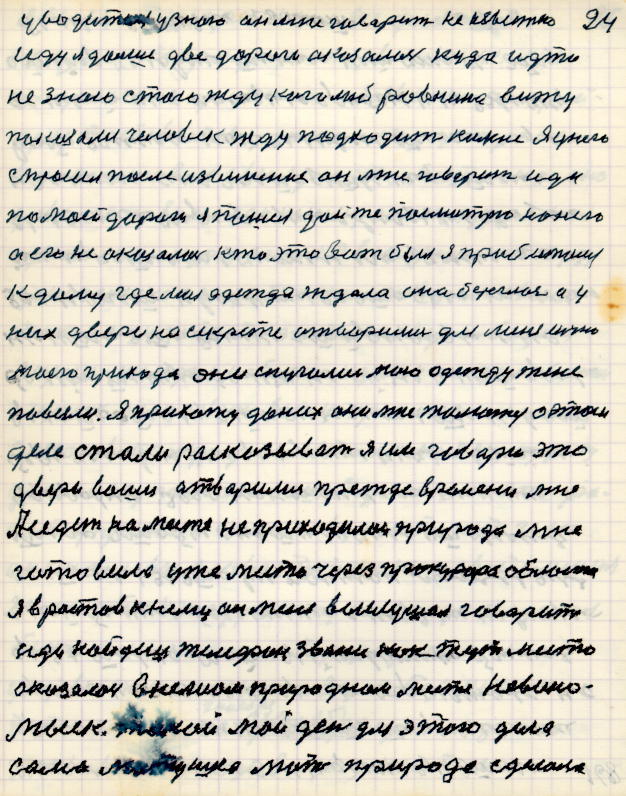 уводит узнаю он мне говарит не известно 24
иду я дальше две дороги оказалась куда идти
не знаю стаю жду кого либ ровнина вижу
показали человек жду подходит ка мне я у него
спросил после извинение он мне говерит иди
по моей дороги я пошел дай те посмотрю на него
а его не оказалась кто это вот был я приб
к дому где моя одежда ждала она берглась а у
них двери на секрете отворилис для меня
моего прихода они спугалис мою одежду
повезли. Я прихожу до них они мне об этом
деле стали расказыват я им говарю это
двери ваши атварилис прежде времени мне
сидет на месте не приходилось природа мне
готовила уже место через прокурора области
я в ростов к нему он меня выслушал говарит
иди найдиш телефон звани как тут место
оказалос в самом природном месте Невино-
мыск. такой мой ден для этого дела
сама матушка мать природа сделала